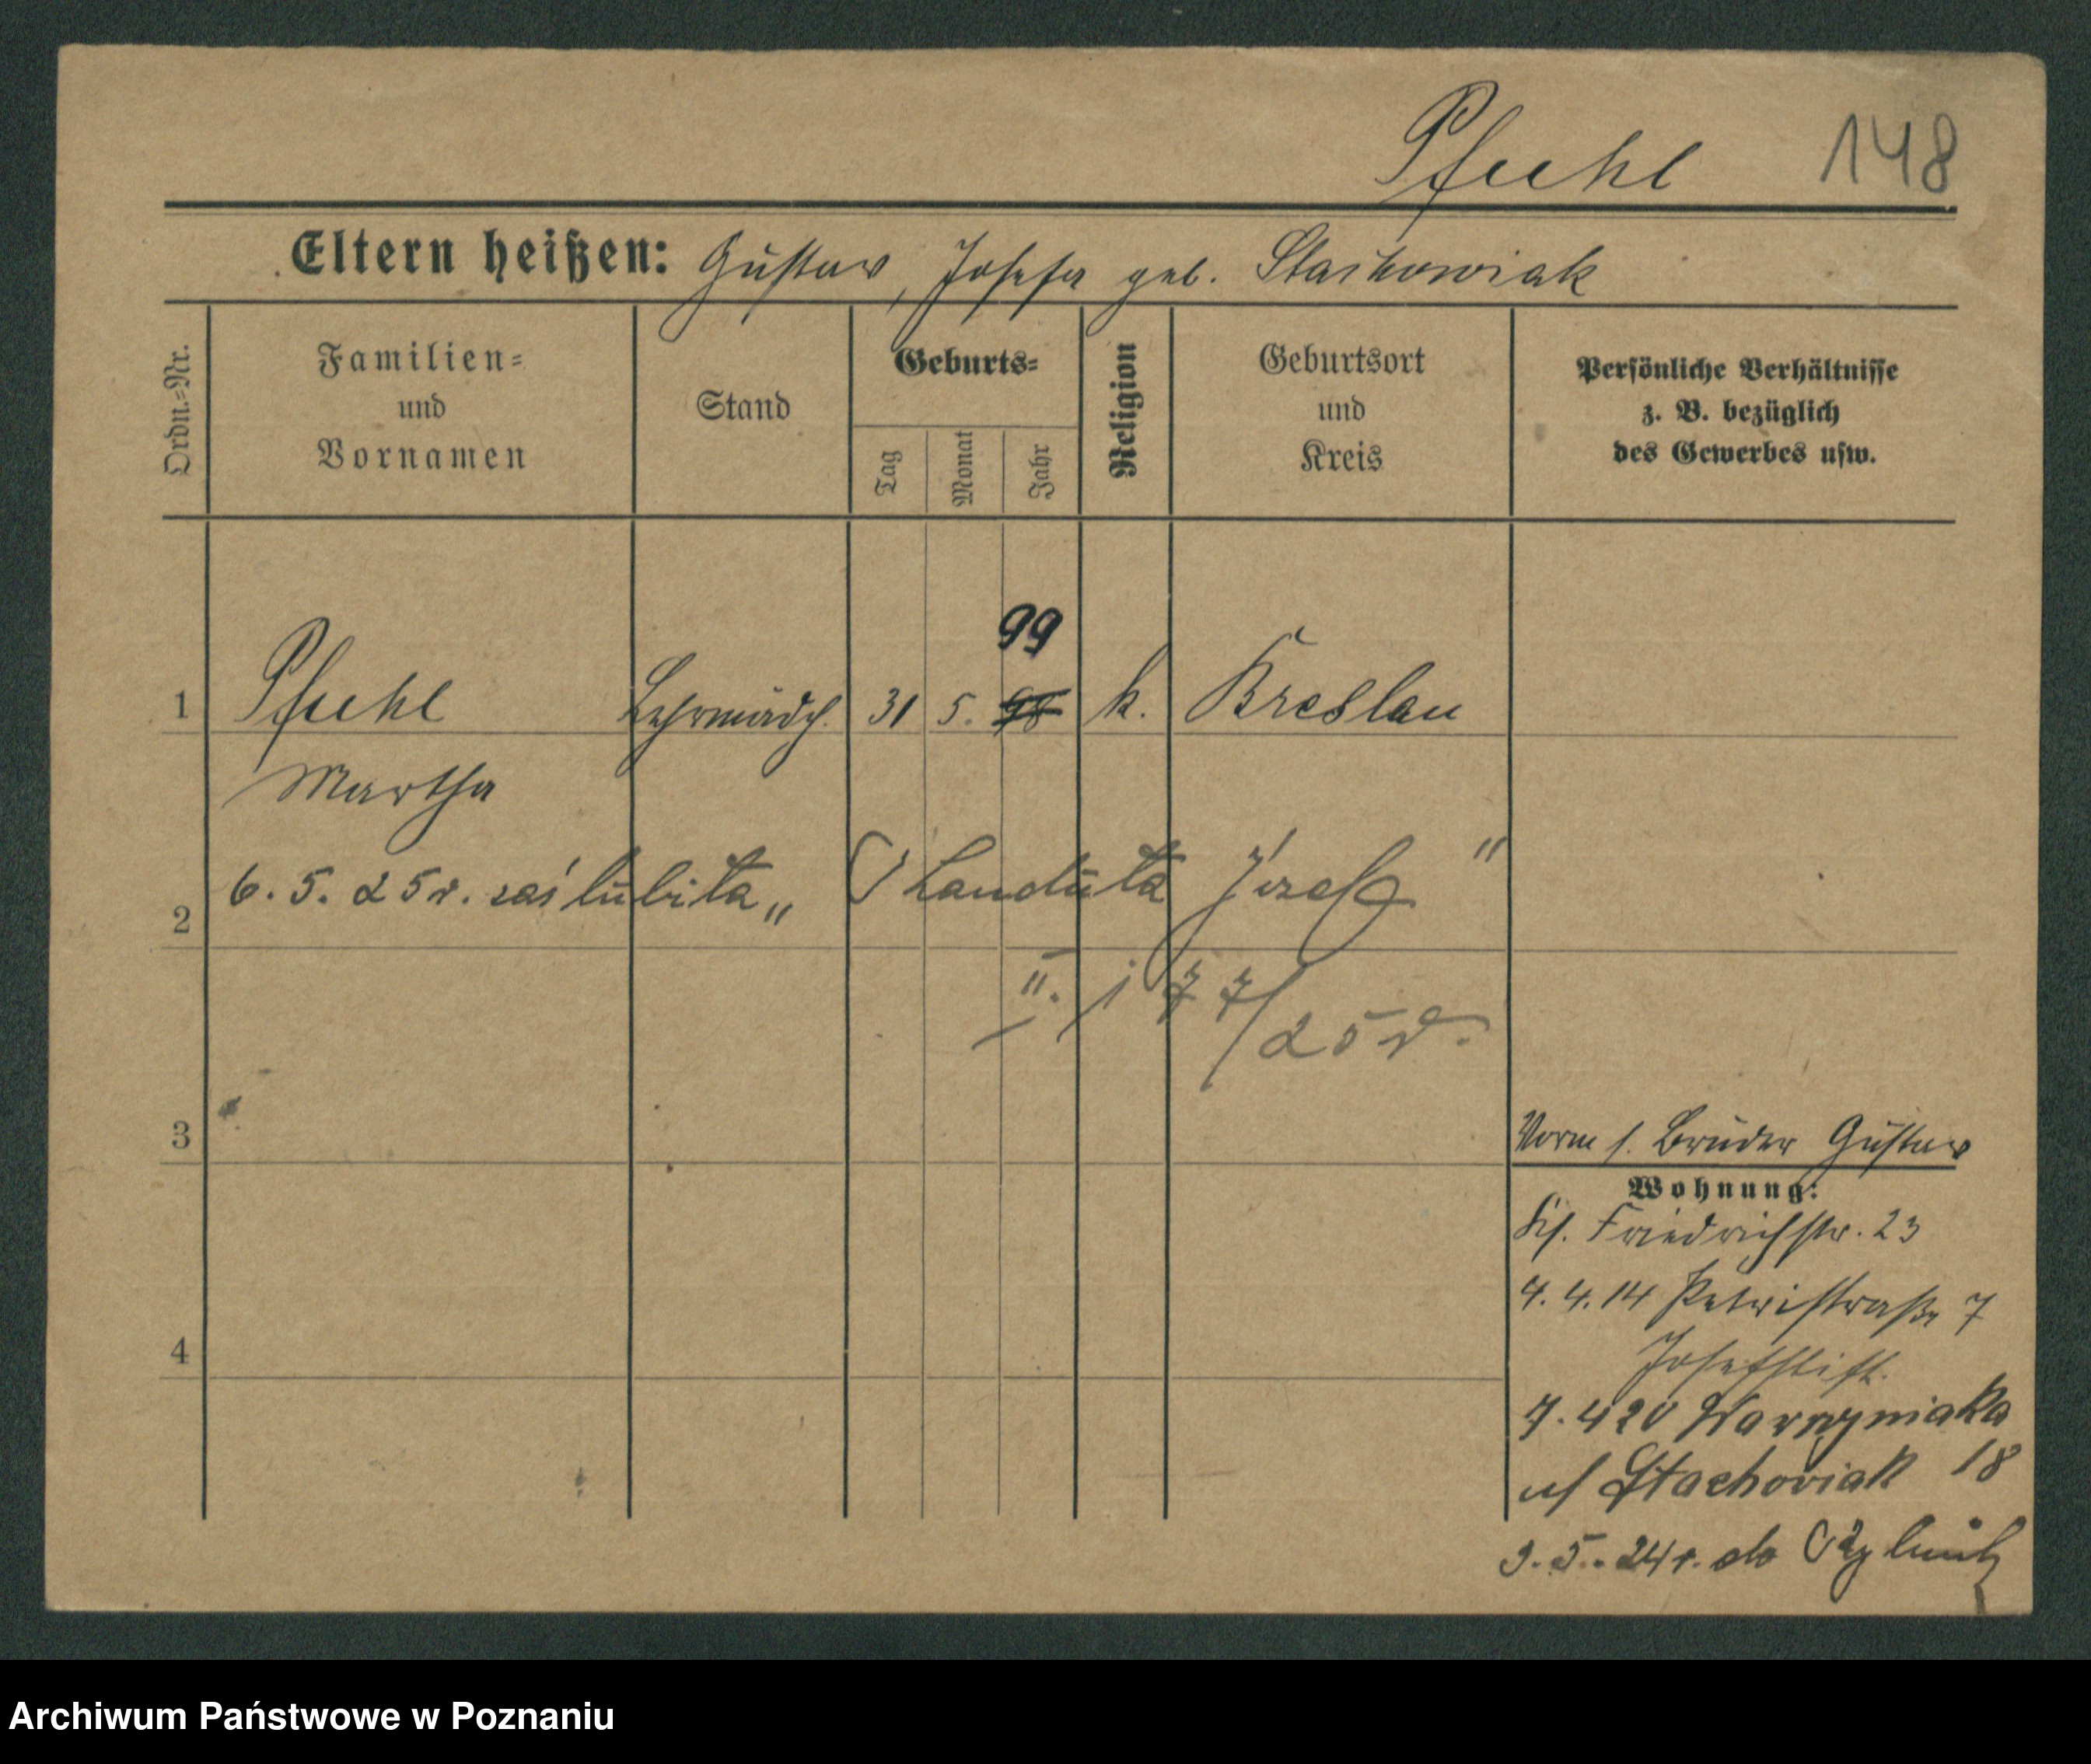 Pfuhl 148
Eltern heißen: Gustav, Josefa geb. Stachowiak
Ordn.-Nr.
Familien-
und
Vornamen
Stand
Geburts-
Tag
Monat
Jahr
Religion
Geburtsort
und
Kreis
Persönliche Verhältnisse
z. B. bezüglich
des Gewerbes usw.
99
1 Pfuhl Lehrmädch. 31 5. 98 k. Breslau
Martha
2 6.5.25r. zaślubiła „ Józef "
II. j 77/25r.
3
Vorm s. Bruder Gustav
Wohnung:
Friedrichstr. 23
4.4.14 Petristraße 7
Josefstift.
4 7.4 20 Wawrzyniaka
u/ Stachoviak 18
9.5.24r. do
Archiwum Państwowe w Poznaniu